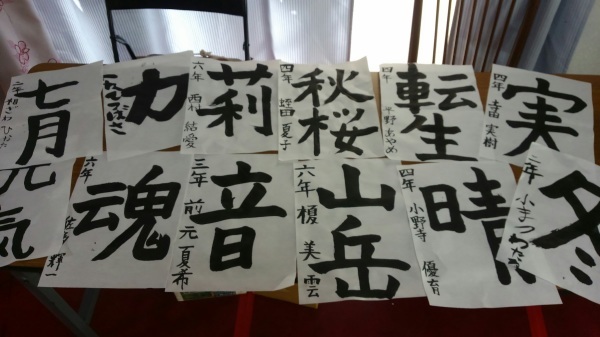 七月
力
莉
六年 西 結愛
秋桜
四年 蛭田 夏子
転生
四年 平野 あやめ
実
四年 幸田 実樹
元気
魂
六年
輝一
音
三年 前元 夏希
山岳
六年 榎 美雲
晴
四年 小野寺 優育
冬
二年 小まつ